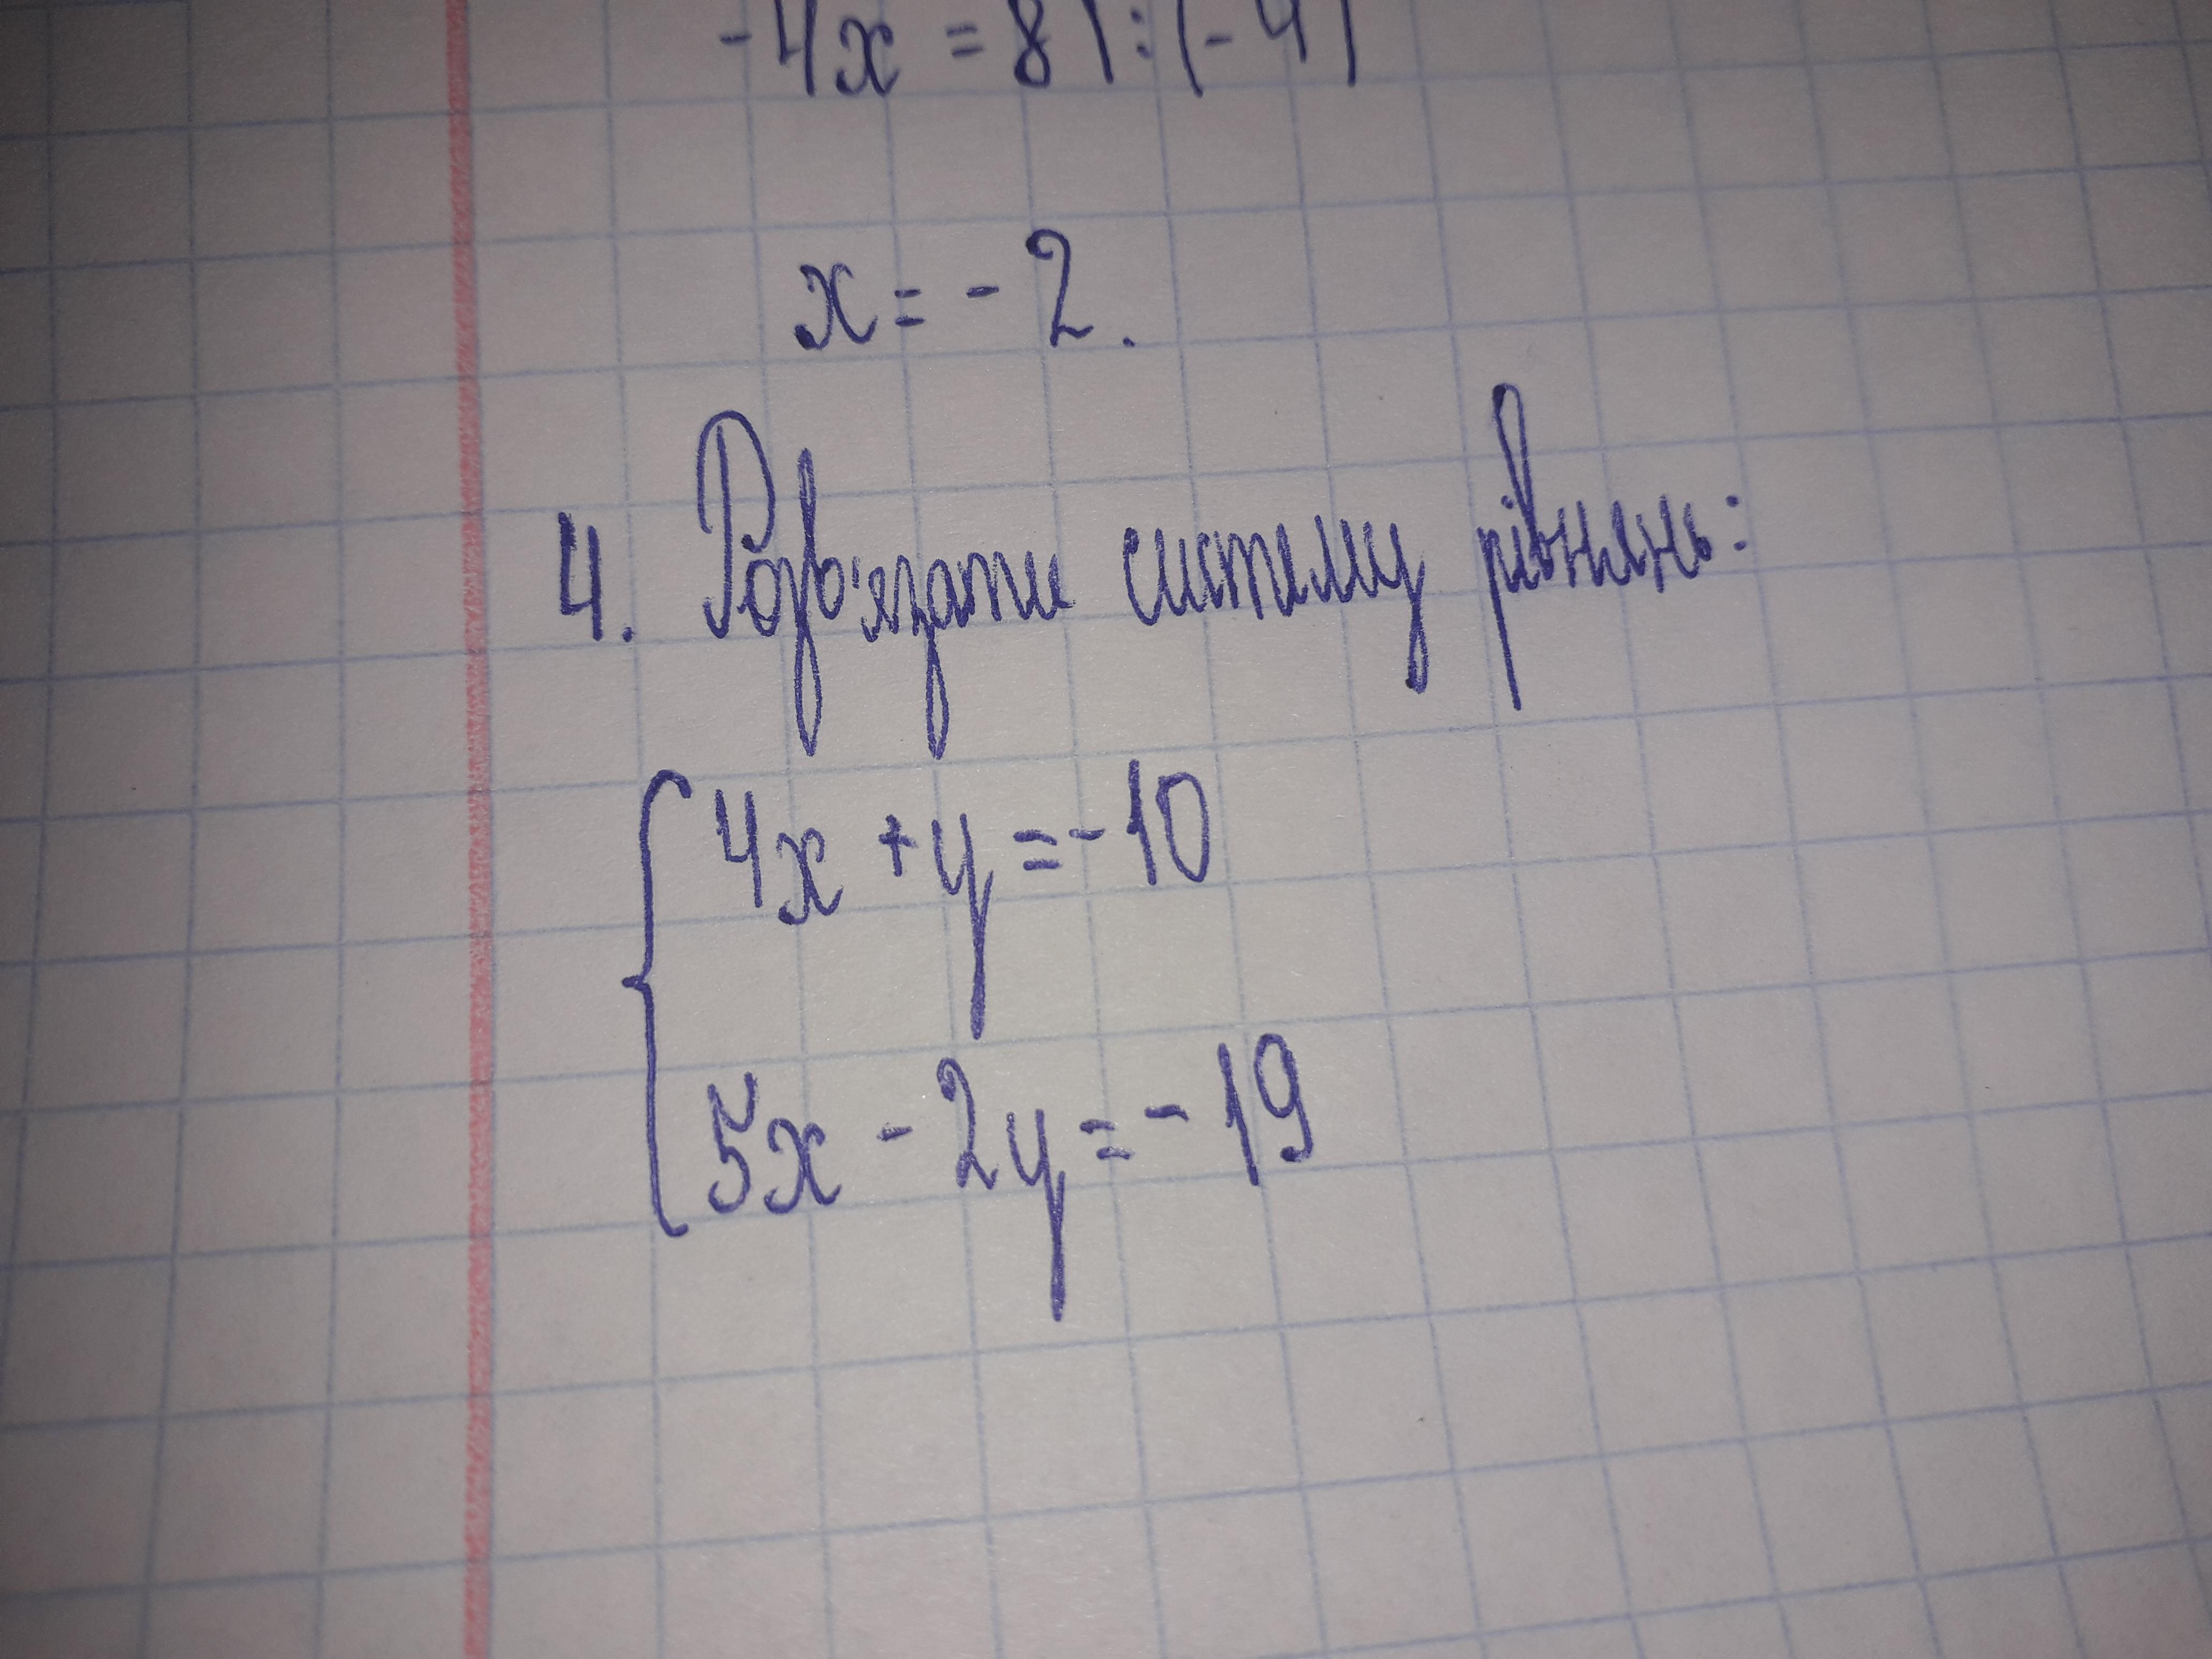 -4x = 8 | : (-4)
x = -2.
4. Розв'язати систему рівнянь:
4x + y = -10
5x - 2y = -19